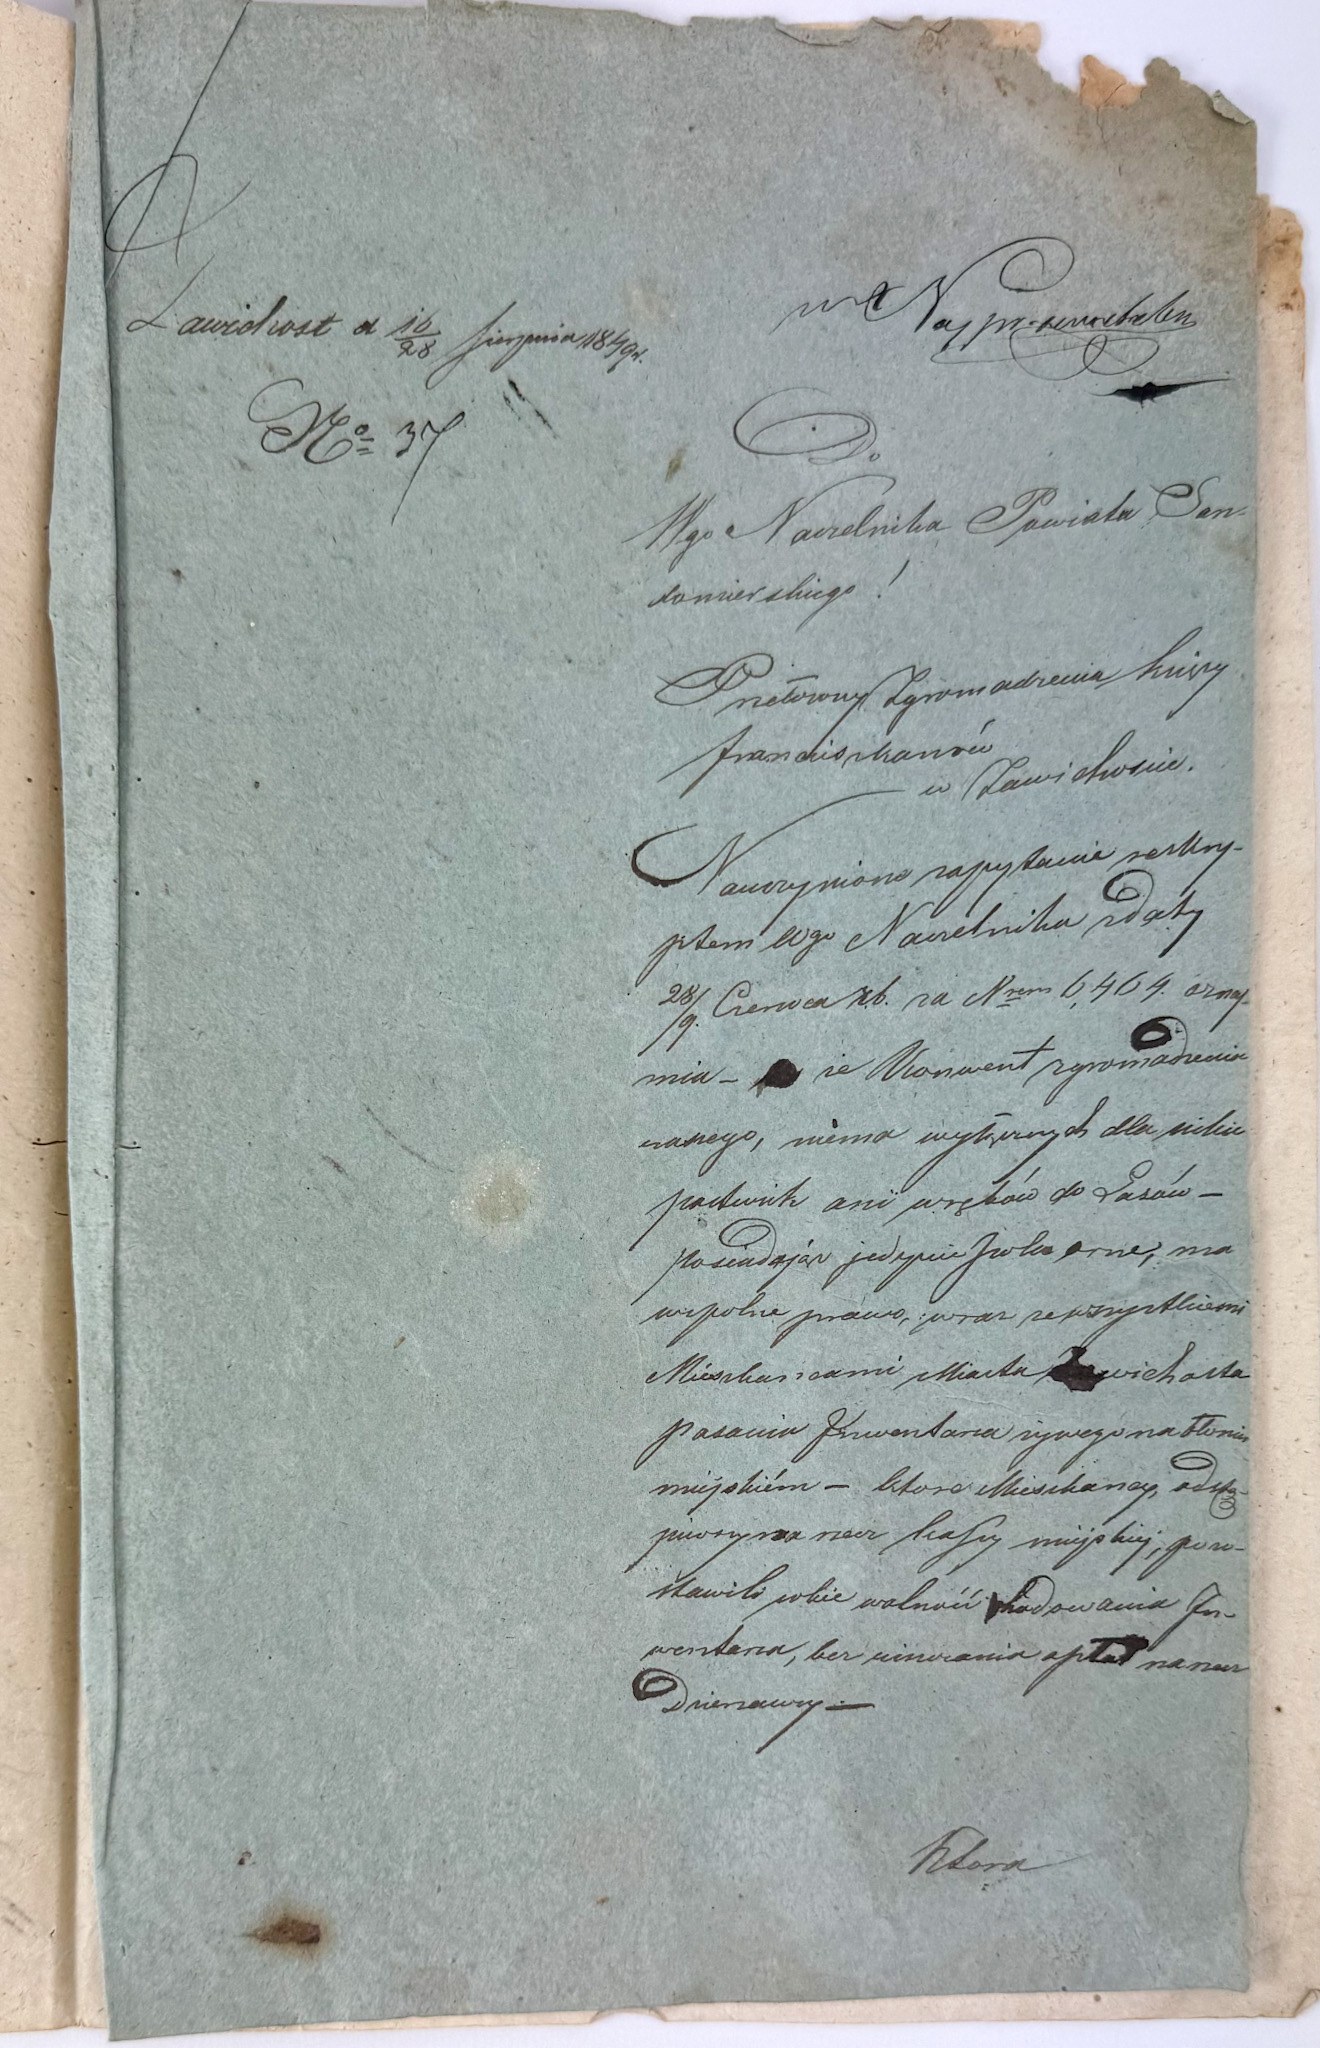 Zawichost d 10/28 Sierpnia 1849 r.
No 37
Do
Wgo Naczelnika Powiatu San-
domierskiego!
Przełożony Zgromadzenia księży
franciszkanów
w Zawichoście.
Na uczynione zapytanie reskry-
ptem Wgo Naczelnika z daty
28/9. Czerwca rb. za Nrem 6,464. oznaj-
mia – że Konwent zgromadzenia
naszego, niema wyłącznych dla siebie
pastwisk ani wrębów do Lasów –
posiadając jedynie Pola orne, ma
wspolne prawo, wraz ze wszystkiemi
Mieszkancami Miasta Zawichosta
pasania Inwentarza żywego na błoniu
miejskiém – ktore Mieszkancy, odstą-
piwszy na rzecz kassy miejskiej, pozo-
stawili sobie wolność hodowania In-
wentarza, bez uiszczania opłat na rzecz
Dzierzawy –
Ktora